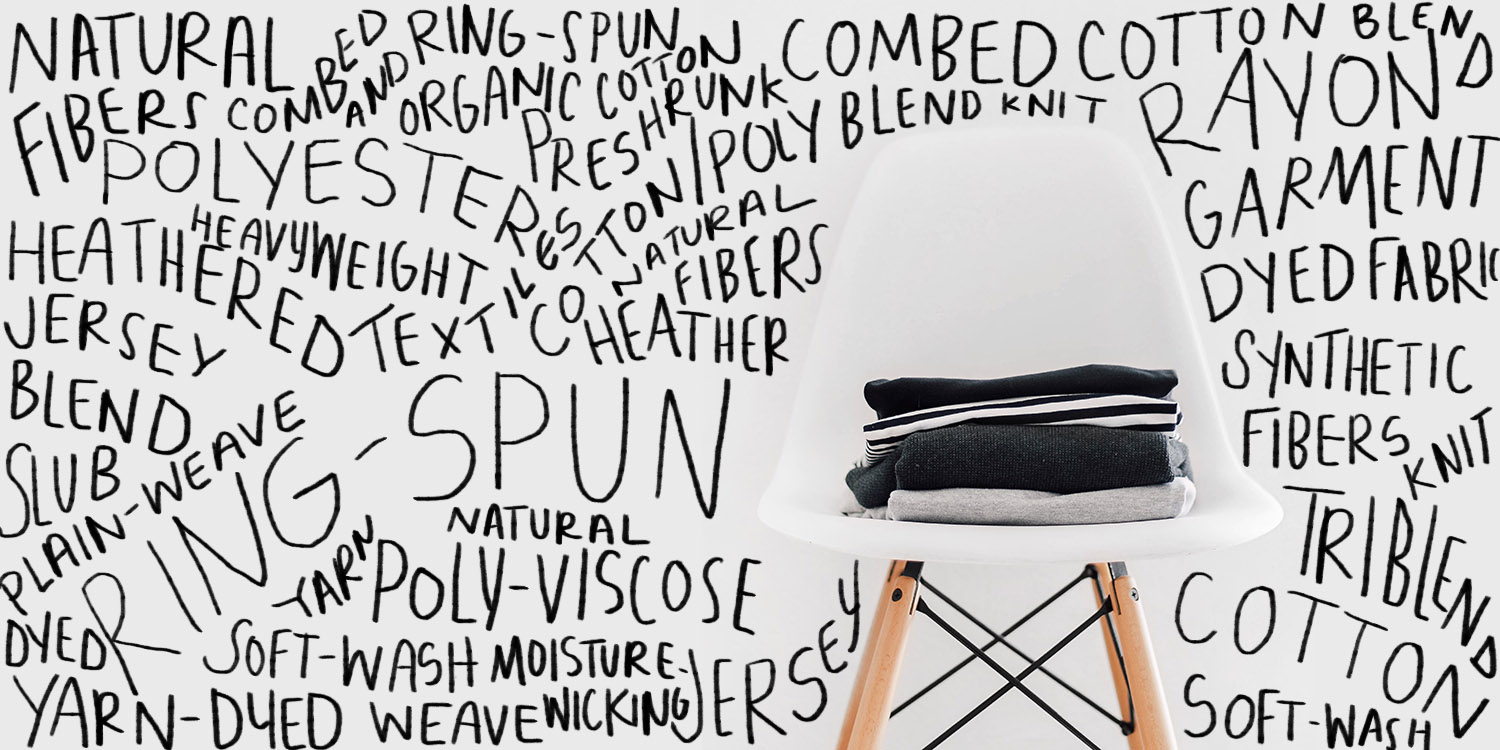 NATURAL
FIBERS
COMBED
AND
RING-SPUN
ORGANIC COTTON
PRESHRUNK
COMBED COTTON BLEND
COTTON/POLY BLEND KNIT
RAYON
POLYESTER
GARMENT
DYED FABRIC
HEATHERED
HEAVYWEIGHT
TEXTILES
NATURAL
FIBERS
HEATHER
JERSEY
BLEND
SYNTHETIC
FIBERS
KNIT
SLUB
PLAIN-WEAVE
RING-SPUN
TRIBLEND
NATURAL
YARN
POLY-VISCOSE
COTTON
DYED
SOFT-WASH
MOISTURE-
WICKING
JERSEY
YARN-DYED WEAVE
SOFT-WASH